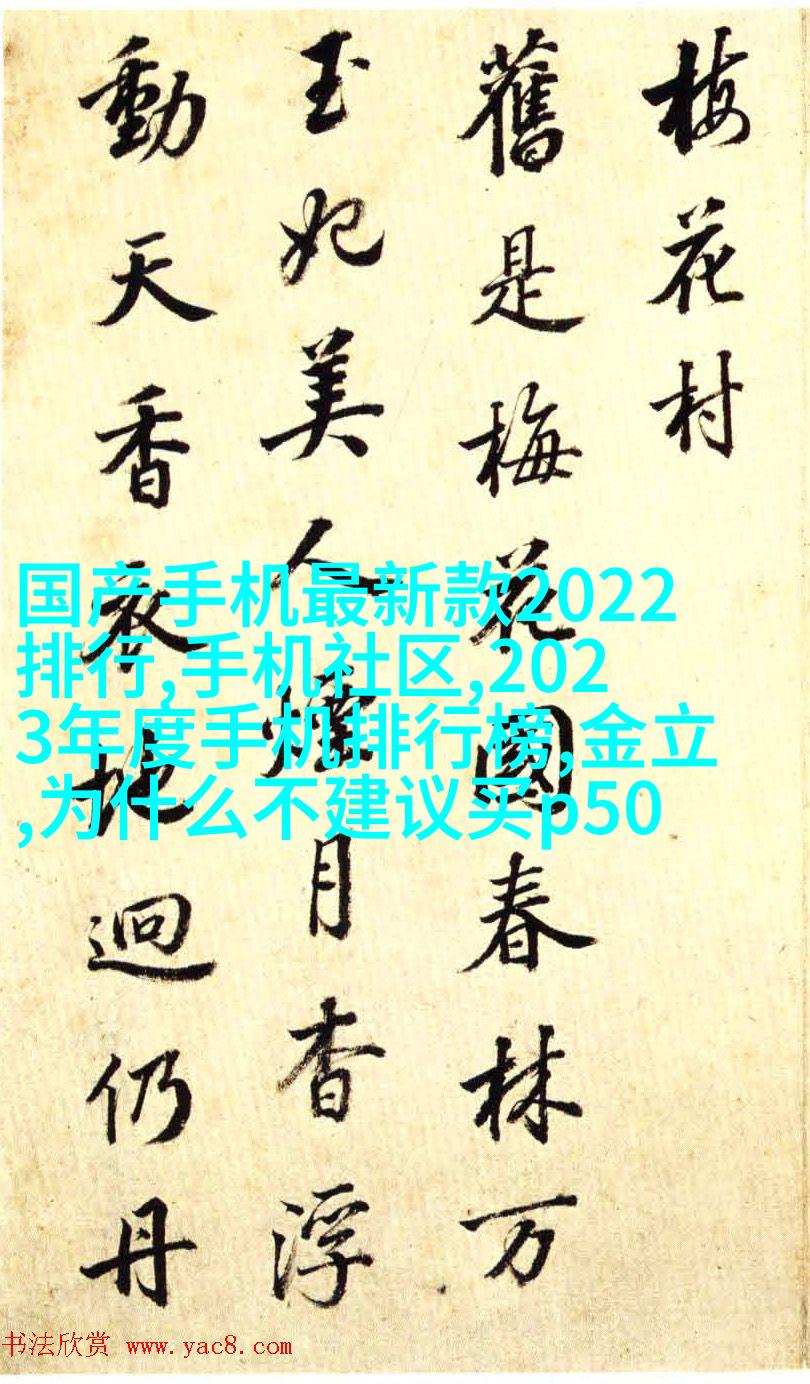 梅花村
舊是梅花國春林万
玉妃美人月杳浮
動天香地迥仍丹
国产手机最新款2022
排行,手机社区,202
3年度手机排行榜,金立
,为什么不建议买p50
书法欣赏 www.yac8.com